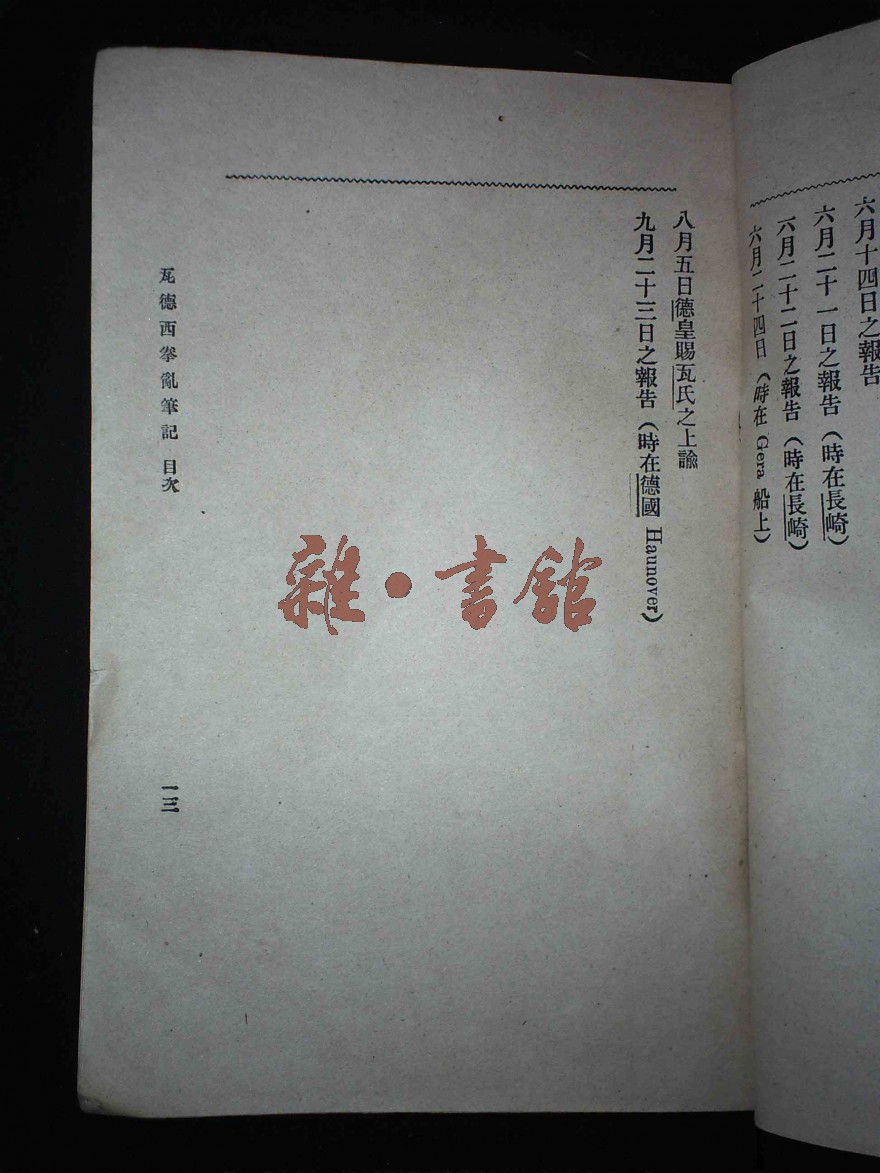 六月十四日之報告
六月二十一日之報告（時在長崎）
六月二十二日之報告（時在長崎）
六月二十四日（時在 Gera 船上）
八月五日德皇賜瓦氏之上諭
九月二十三日之報告（時在德國 Haunover）
瓦德西拳亂筆記 目次
一三
雜·書館